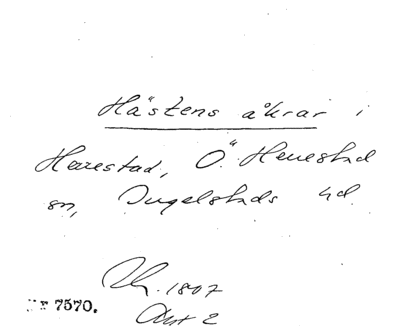 Hästens åkrar i
Herrestad, Ö. Herrestad
sn, Ingelstads hd
1807
Akt 2
Nr 7570.